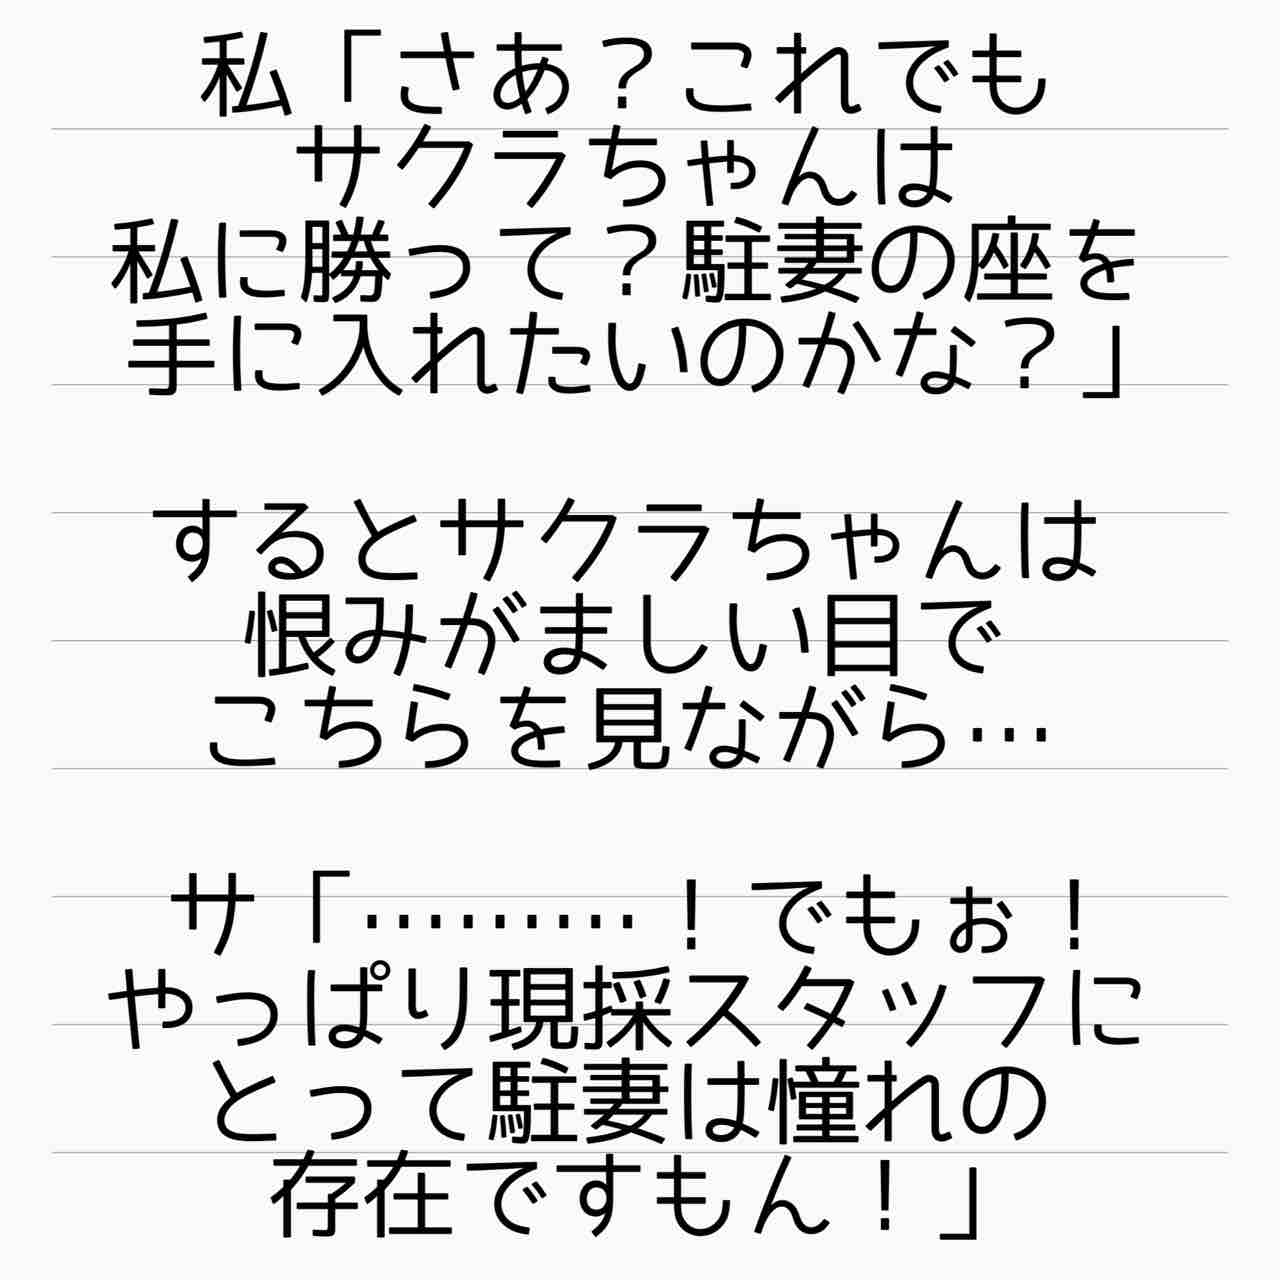 私「さあ？これでも
サクラちゃんは
私に勝って？駐妻の座を
手に入れたいのかな？」
するとサクラちゃんは
恨みがましい目で
こちらを見ながら…
サ「………！でもぉ！
やっぱり現採スタッフに
とって駐妻は憧れの
存在ですもん！」